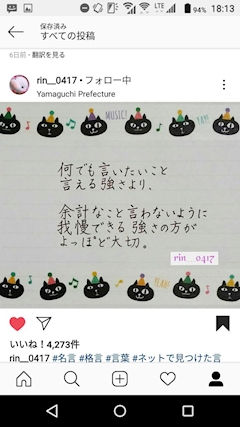 LTE
94%
18:13
保存済み
すべての投稿
6日前・翻訳を見る
rin__0417・フォロー中
Yamaguchi Prefecture
MUSIC!
YAY!
何でも言いたいこと
言える強さより、
余計なこと言わないように
我慢できる強さの方が
よっぽど大切。
rin__0417
YEAH!
いいね！4,273件
rin__0417 #名言 #格言 #言葉 #ネットで見つけた言